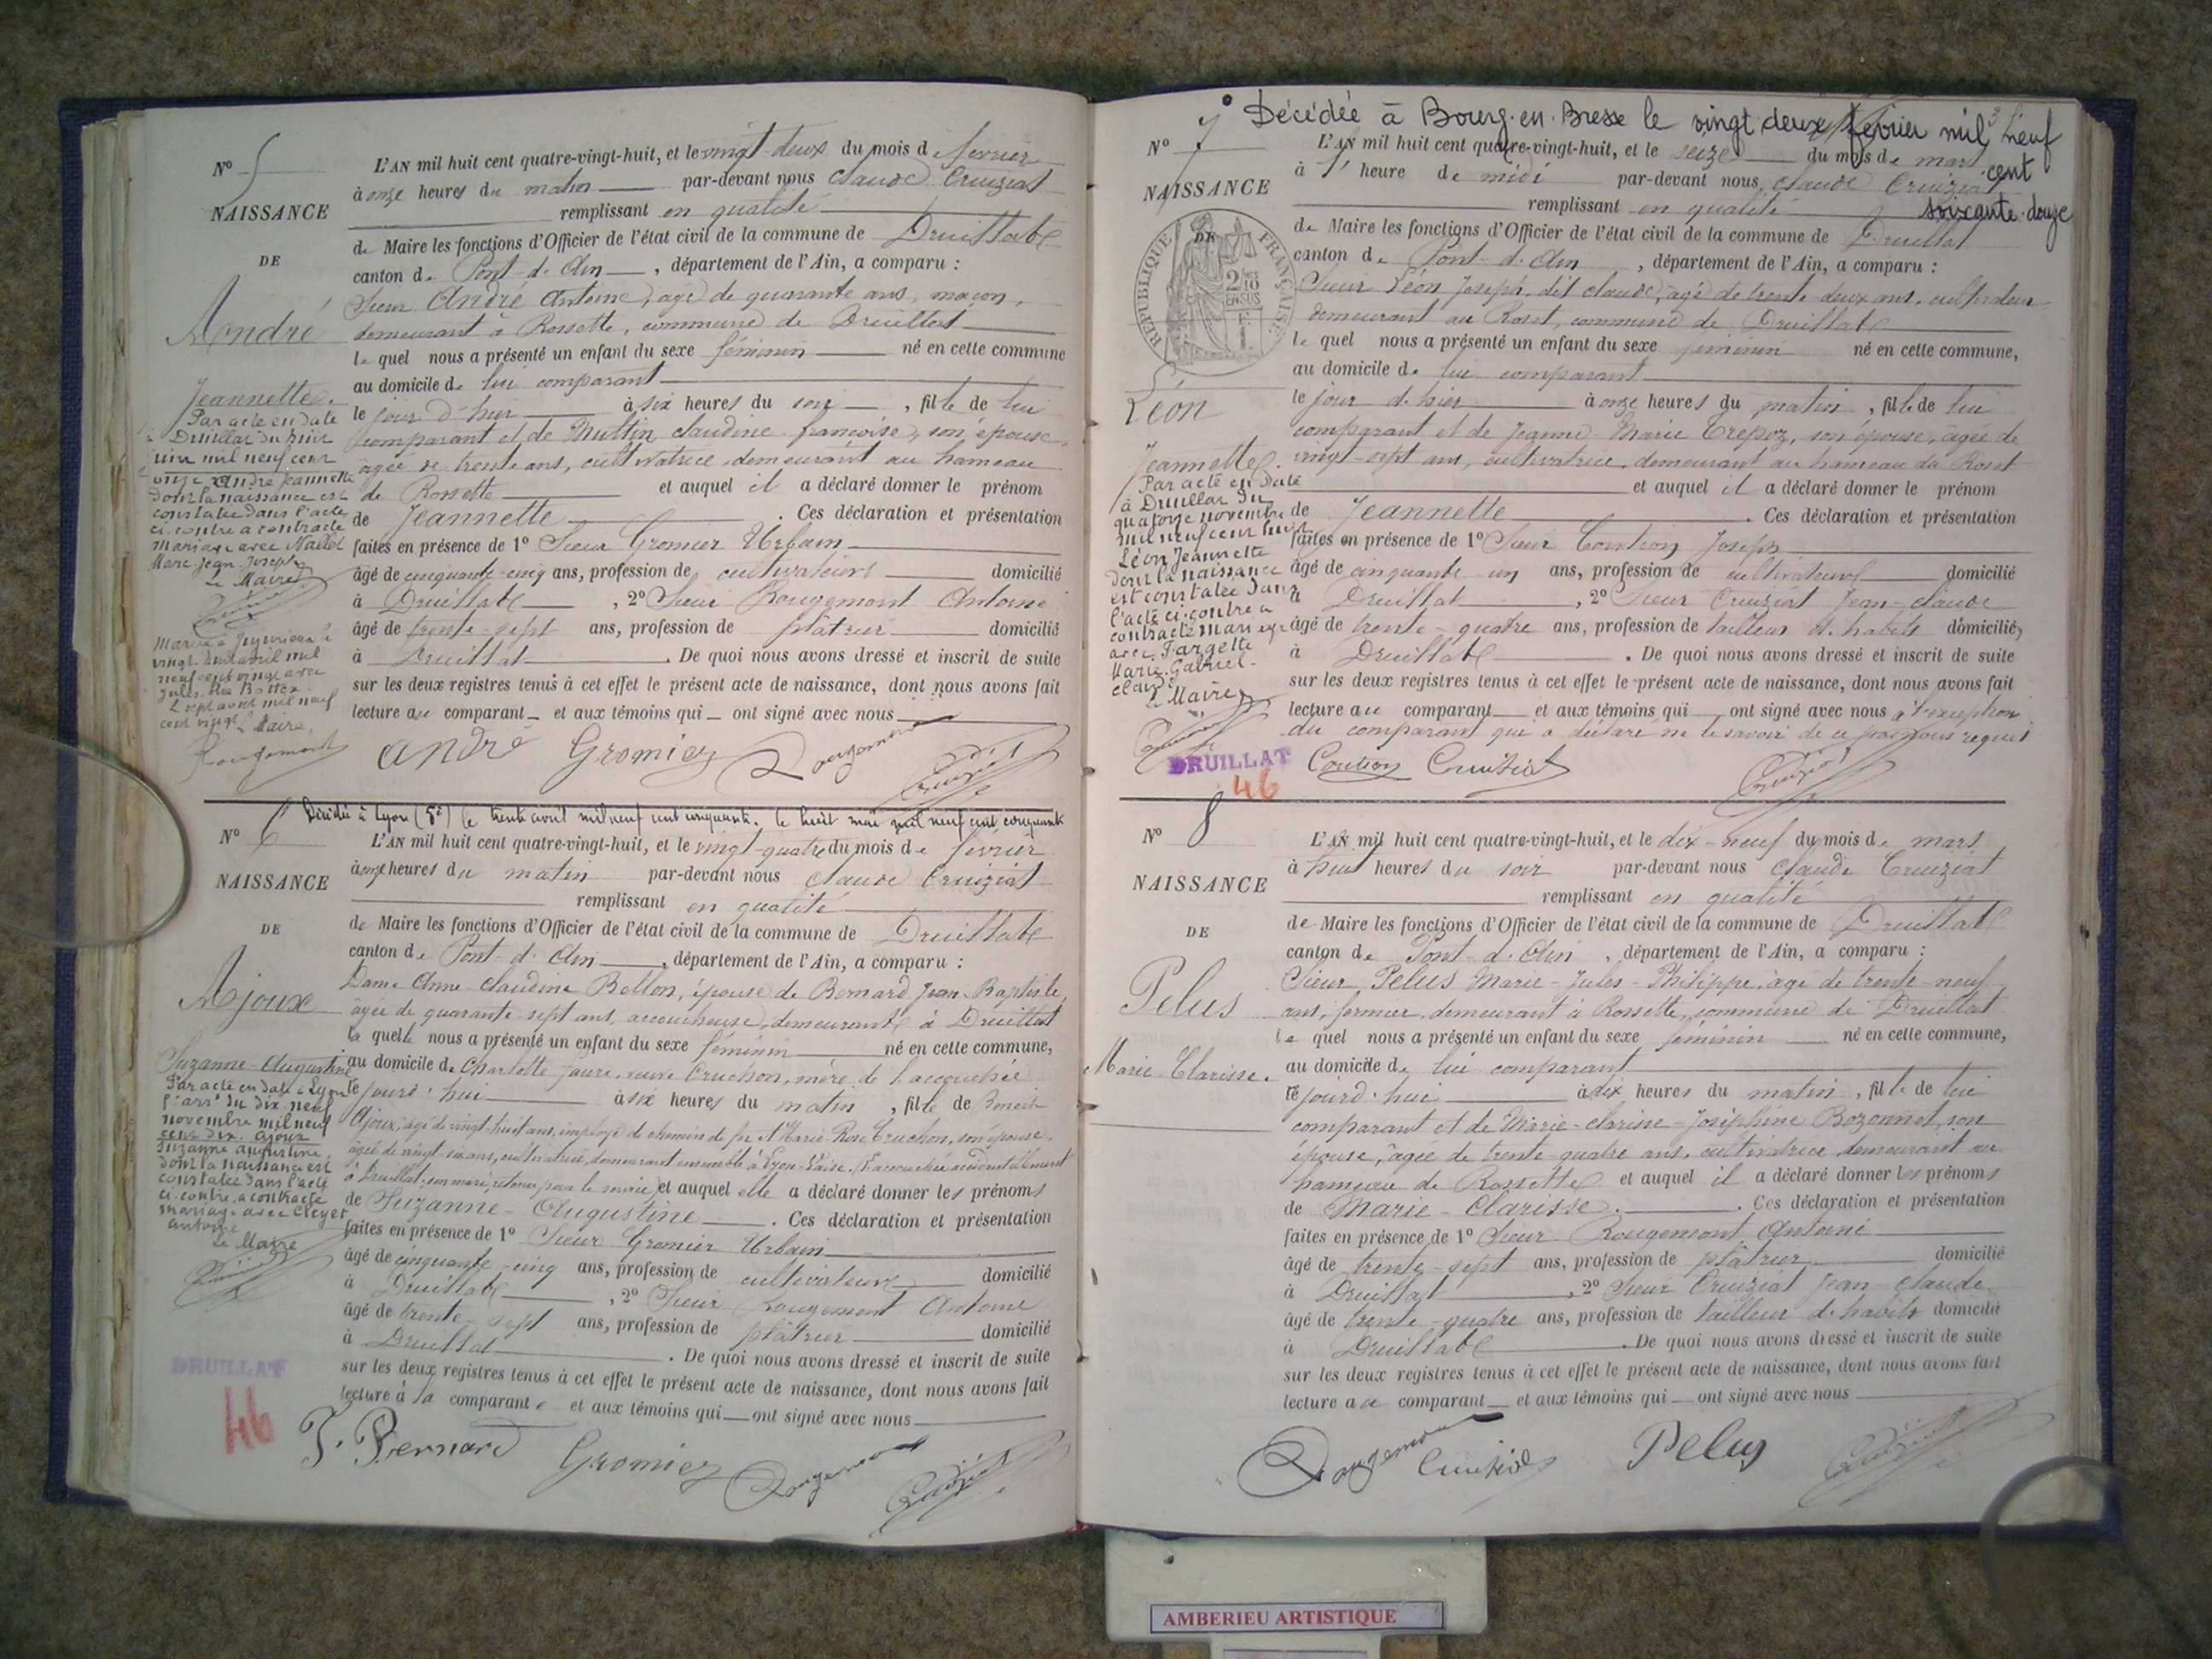 N° 5
NAISSANCE
DE
André
Jeannette.
Par acte en date
à Druillat du
mil neuf cent
onze André Jeannette
dont la naissance est
constatée dans l'acte
ci-contre a contracté
mariage avec Nallet
Marc Jean Joseph
Le Maire
Mariée à
vingt avril mil
neuf cent vingt avec
Jules
Le sept avril mil neuf
cent vingt Maire,
Rougemont
L'AN mil huit cent quatre-vingt-huit, et le vingt-deux du mois de février
à onze heures du matin par-devant nous Claude Cruiziat
remplissant en qualité
de Maire les fonctions d'Officier de l'état civil de la commune de Druillat
canton de Pont-d'Ain, département de l'Ain, a comparu :
Sieur André Antoine, âgé de quarante ans, maçon,
demeurant à Rossette, commune de Druillat
le quel nous a présenté un enfant du sexe féminin né en cette commune
au domicile de lui comparant
le jour d'hier à six heures du soir, fille de lui
comparant et de Muttin Claudine françoise, son épouse,
âgée de trente ans, cultivatrice, demeurant au hameau
de Rossette et auquel il a déclaré donner le prénom
de Jeannette. Ces déclaration et présentation
faites en présence de 1° Sieur Gromier Urbain
âgé de cinquante-cinq ans, profession de cultivateur domicilié
à Druillat, 2° Sieur Rougemont Antoine
âgé de trente-sept ans, profession de plâtrier domicilié
à Druillat. De quoi nous avons dressé et inscrit de suite
sur les deux registres tenus à cet effet le présent acte de naissance, dont nous avons fait
lecture au comparant et aux témoins qui ont signé avec nous
André Gromier Rougemont Cruiziat
Décédée à Lyon (5e) le trente avril mil neuf cent cinquante. le huit mai mil neuf cent cinquante
N° 6
NAISSANCE
DE
Ajoux
Suzanne-Augustine
Par acte en date à Lyon
arrt du dix-neuf
novembre mil neuf
cent dix Ajoux
Suzanne Augustine
dont la naissance est
constatée dans l'acte
ci-contre a contracté
mariage avec Cleyet
Antoine
Le Maire
DRUILLAT
46
L'AN mil huit cent quatre-vingt-huit, et le vingt-quatre du mois de février
à onze heures du matin par-devant nous Claude Cruiziat
remplissant en qualité
de Maire les fonctions d'Officier de l'état civil de la commune de Druillat
canton de Pont-d'Ain, département de l'Ain, a comparu :
Dame Anne-Claudine Bellon, épouse de Bernard Jean-Baptiste,
âgée de quarante-sept ans, accoucheuse, demeurant à Druillat
la quelle nous a présenté un enfant du sexe féminin né en cette commune,
au domicile de Charlotte Faure veuve Cruchon, mère de l'accouchée
le jourd'hui à six heures du matin, fille de Benoit
Ajoux, âgé de vingt-huit ans, employé de chemin de fer et Marie-Rose Cruchon, son épouse,
âgée de vingt-six ans, cultivatrice, demeurant ensemble à Lyon-Vaise. L'accouchée accidentellement
à Druillat, son mari, retenu pour le service et auquel elle a déclaré donner les prénoms
de Suzanne-Augustine. Ces déclaration et présentation
faites en présence de 1° Sieur Gromier Urbain
âgé de cinquante-cinq ans, profession de cultivateur domicilié
à Druillat, 2° Sieur Rougemont Antoine
âgé de trente-sept ans, profession de plâtrier domicilié
à Druillat. De quoi nous avons dressé et inscrit de suite
sur les deux registres tenus à cet effet le présent acte de naissance, dont nous avons fait
lecture à la comparante et aux témoins qui ont signé avec nous
J. Bernard Gromier Rougemont Cruiziat
Décédée à Bourg-en-Bresse le vingt-deux février mil neuf
cent
soixante-douze
N° 7
NAISSANCE
DE
REPUBLIQUE FRANÇAISE
2/10 EN SUS
Léon
Jeannette.
Par acte en date
à Druillat du
quatorze novembre
mil neuf cent huit
Léon Jeannette
dont la naissance
est constatée dans
l'acte ci-contre a
contracté mariage
avec Fargette
Marie Gabriel
Claude
Le Maire
DRUILLAT
46
L'AN mil huit cent quatre-vingt-huit, et le seize du mois de mars
à 1 heure de midi par-devant nous Claude Cruiziat
remplissant en qualité
de Maire les fonctions d'Officier de l'état civil de la commune de Druillat
canton de Pont-d'Ain, département de l'Ain, a comparu :
Sieur Léon Joseph, dit Claude, âgé de trente-deux ans, cultivateur
demeurant au Roset, commune de Druillat
le quel nous a présenté un enfant du sexe féminin né en cette commune,
au domicile de lui comparant
le jour de hier à onze heures du matin, fille de lui
comparant et de Jeanne-Marie Trepoz, son épouse, âgée de
vingt-sept ans, cultivatrice, demeurant au hameau du Roset
et auquel il a déclaré donner le prénom
de Jeannette. Ces déclaration et présentation
faites en présence de 1° Sieur Coution Joseph
âgé de cinquante-un ans, profession de cultivateur domicilié
à Druillat, 2° Sieur Cruiziat Jean-Claude
âgé de trente-quatre ans, profession de tailleur d'habits domicilié
à Druillat. De quoi nous avons dressé et inscrit de suite
sur les deux registres tenus à cet effet le présent acte de naissance, dont nous avons fait
lecture au comparant et aux témoins qui ont signé avec nous à l'exception
du comparant qui a déclaré ne le savoir de ce pas nous requis
Coution Cruiziat Cruiziat
N° 8
NAISSANCE
DE
Pelus
Marie-Clarisse.
L'AN mil huit cent quatre-vingt-huit, et le dix-neuf du mois de mars
à huit heures du soir par-devant nous Claude Cruiziat
remplissant en qualité
de Maire les fonctions d'Officier de l'état civil de la commune de Druillat
canton de Pont-d'Ain, département de l'Ain, a comparu :
Sieur Pelus Marie-Jules-Philippe, âgé de trente-neuf
ans, fermier, demeurant à Rossette, commune de Druillat
le quel nous a présenté un enfant du sexe féminin né en cette commune,
au domicile de lui comparant
le jourd'hui à dix heures du matin, fille de lui
comparant et de Marie-Clarisse-Joséphine Bozonnet, son
épouse, âgée de trente-quatre ans, cultivatrice demeurant au
hameau de Rossette et auquel il a déclaré donner les prénoms
de Marie-Clarisse. Ces déclaration et présentation
faites en présence de 1° Sieur Rougemont Antoine
âgé de trente-sept ans, profession de plâtrier domicilié
à Druillat, 2° Sieur Cruiziat Jean-Claude
âgé de trente-quatre ans, profession de tailleur d'habits domicilié
à Druillat. De quoi nous avons dressé et inscrit de suite
sur les deux registres tenus à cet effet le présent acte de naissance, dont nous avons fait
lecture au comparant et aux témoins qui ont signé avec nous
Rougemont Cruiziat Pelus Cruiziat
AMBERIEU ARTISTIQUE